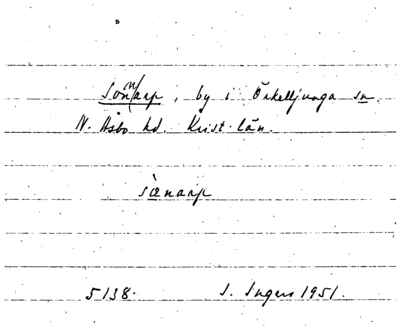 Sonnarp, by i Örkelljunga sn.
N. Åsbo hd. Krist. län.
sɷnarp
5138. I. Ingers 1951.